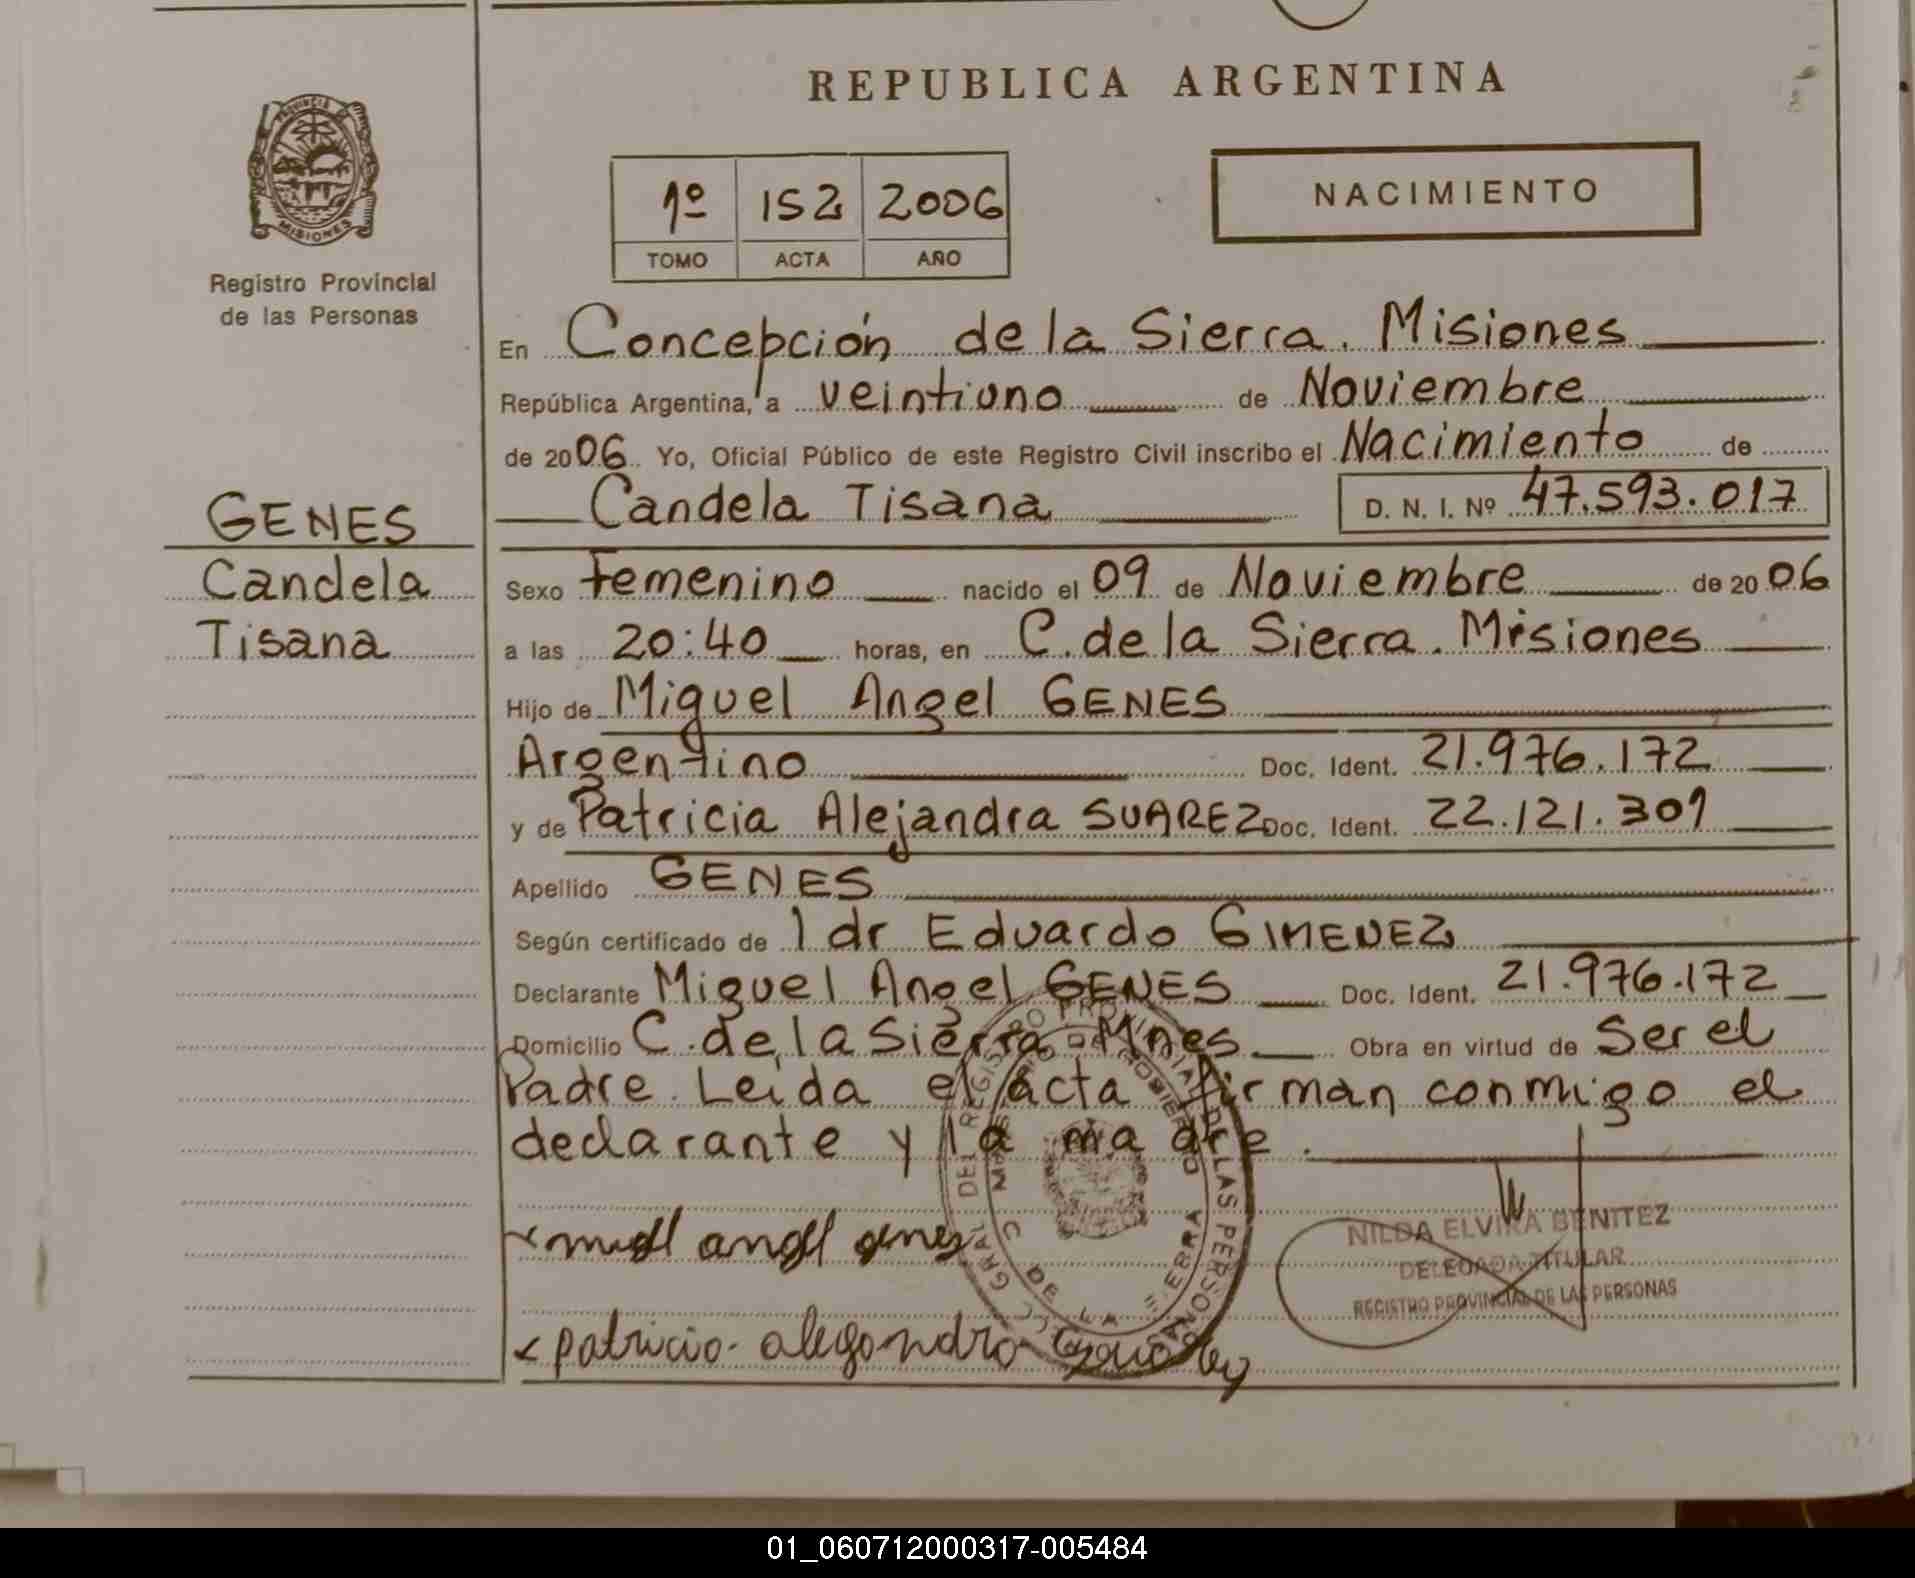 REPUBLICA ARGENTINA
PROVINCIA
MISIONES
Registro Provincial
de las Personas
1º 152 2006
TOMO ACTA AÑO
NACIMIENTO
En Concepción de la Sierra. Misiones
República Argentina, a veintiuno de Noviembre
de 2006. Yo, Oficial Público de este Registro Civil inscribo el Nacimiento de
Candela Tisana D. N. I. Nº 47.593.017
GENES
Candela
Tisana
Sexo Femenino nacido el 09 de Noviembre de 2006
a las 20:40 horas, en C. de la Sierra. Misiones
Hijo de Miguel Angel GENES
Argentino Doc. Ident. 21.976.172
y de Patricia Alejandra SUAREZ Doc. Ident. 22.121.301
Apellido GENES
Según certificado de 1 dr Eduardo GIMENEZ
Declarante Miguel Angel GENES Doc. Ident. 21.976.172
Domicilio C. de la Sierra Mnes Obra en virtud de Ser el
Padre. Leida el acta firman conmigo el
declarante y la madre.
NILDA ELVIRA BENITEZ
DELEGADA TITULAR
REGISTRO PROVINCIAL DE LAS PERSONAS
angel
patricia alegandra
01_060712000317-005484